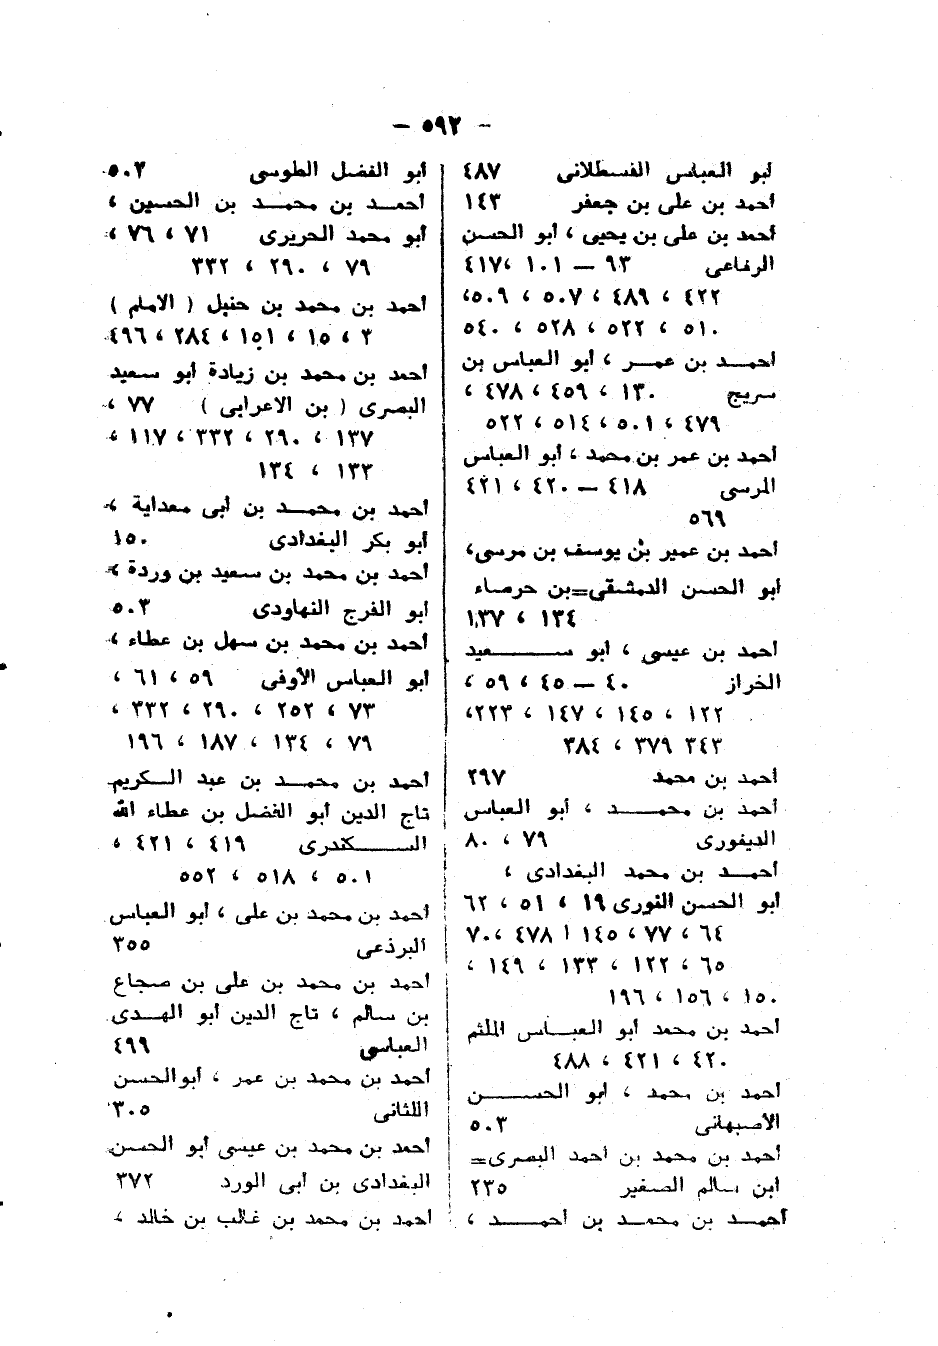 - ٥٩٢ -
أبو العباس القسطلانى ٤٨٧
أحمد بن على بن جعفر ١٤٣
أحمد بن على بن يحيى ، أبو الحسن
الرفاعى ٩٣ - ١٠١ ، ٤١٧
٤٢٢ ، ٤٨٩ ، ٥٠٧ ، ٥٠٩،
٥١٠ ، ٥٢٢ ، ٥٢٨ ، ٥٤٠
أحمد بن عمر ، أبو العباس بن
سريج ١٣٠ ، ٤٥٩ ، ٤٧٨ ،
٤٧٩ ، ٥٠١ ، ٥١٤ ، ٥٢٢
أحمد بن عمر بن محمد ، أبو العباس
المرسى ٤١٨ - ٤٢٠ ، ٤٢١
٥٦٩
أحمد بن عمير بن يوسف بن مرسى،
أبو الحسن الدمشقى=بن حرصاء
١٣٤ ، ١٣٧
أحمد بن عيسى ، أبو سعيد
الخراز ٤٠ - ٤٥ ، ٥٩ ،
١٢٢ ، ١٤٥ ، ١٤٧ ، ٢٢٣،
٣٤٣ ٣٧٩ ، ٣٨٤
أحمد بن محمد ٢٩٧
أحمد بن محمد ، أبو العباس
الديفورى ٧٩ ، ٨٠
أحمد بن محمد البغدادى ،
أبو الحسن النورى ١٩ ، ٥١ ، ٦٢
٦٤ ، ٧٧ ، ١٤٥ ا ٤٧٨ ، ٧٠
٦٥ ، ١٢٢ ، ١٣٣ ، ١٤٩ ،
١٥٠ ، ١٥٦ ، ١٩٦
أحمد بن محمد أبو العباس الملثم
٤٢٠ ، ٤٢١ ، ٤٨٨
أحمد بن محمد ، أبو الحسن
الأصبهانى ٥٠٣
أحمد بن محمد بن أحمد البصرى=
ابن سالم الصغير ٢٣٥
أحمد بن محمد بن أحمد ،
أبو الفضل الطوسى ٥٠٣
أحمد بن محمد بن الحسين ،
أبو محمد الحريرى ٧١ ، ٧٦ ،
٧٩ ، ٢٩٠ ، ٣٣٢
أحمد بن محمد بن حنبل ( الامام )
٣ ، ١٥ ، ١٥١ ، ٢٨٤ ، ٤٩٦
أحمد بن محمد بن زيادة أبو سعيد
البصرى ( بن الاعرابى ) ٧٧ ،
١٣٧ ، ٢٩٠ ، ٣٣٢ ، ١١٧ ،
١٣٣ ، ١٣٤
أحمد بن محمد بن أبى معداية ،
أبو بكر البغدادى ١٥٠
أحمد بن محمد بن سعيد بن وردة ،
أبو الفرج النهاودى ٥٠٣
أحمد بن محمد بن سهل بن عطاء ،
أبو العباس الأوفى ٥٩ ، ٦١ ،
٧٣ ، ٢٥٢ ، ٢٩٠ ، ٣٣٢ ،
٧٩ ، ١٣٤ ، ١٨٧ ، ١٩٦
أحمد بن محمد بن عبد الكريم
تاج الدين أبو الفضل بن عطاء الله
السكندرى ٤١٩ ، ٤٢١ ،
٥٠١ ، ٥١٨ ، ٥٥٢
أحمد بن محمد بن على ، أبو العباس
البرذعى ٣٥٥
أحمد بن محمد بن على بن صجاع
بن سالم ، تاج الدين أبو الهدى
العباسى ٤٩٩
أحمد بن محمد بن عمر ، أبوالحسن
اللثانى ٣٠٥
أحمد بن محمد بن عيسى أبو الحسن
البغدادى بن أبى الورد ٣٧٢
أحمد بن محمد بن غالب بن خالد ،